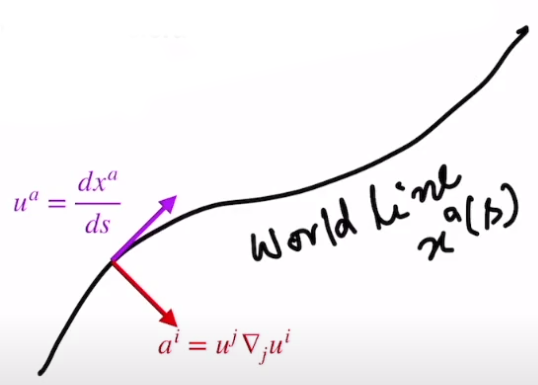 uᵃ = dxᵃ/ds
World Line
xᵃ(s)
aⁱ = uʲ∇ⱼuⁱ